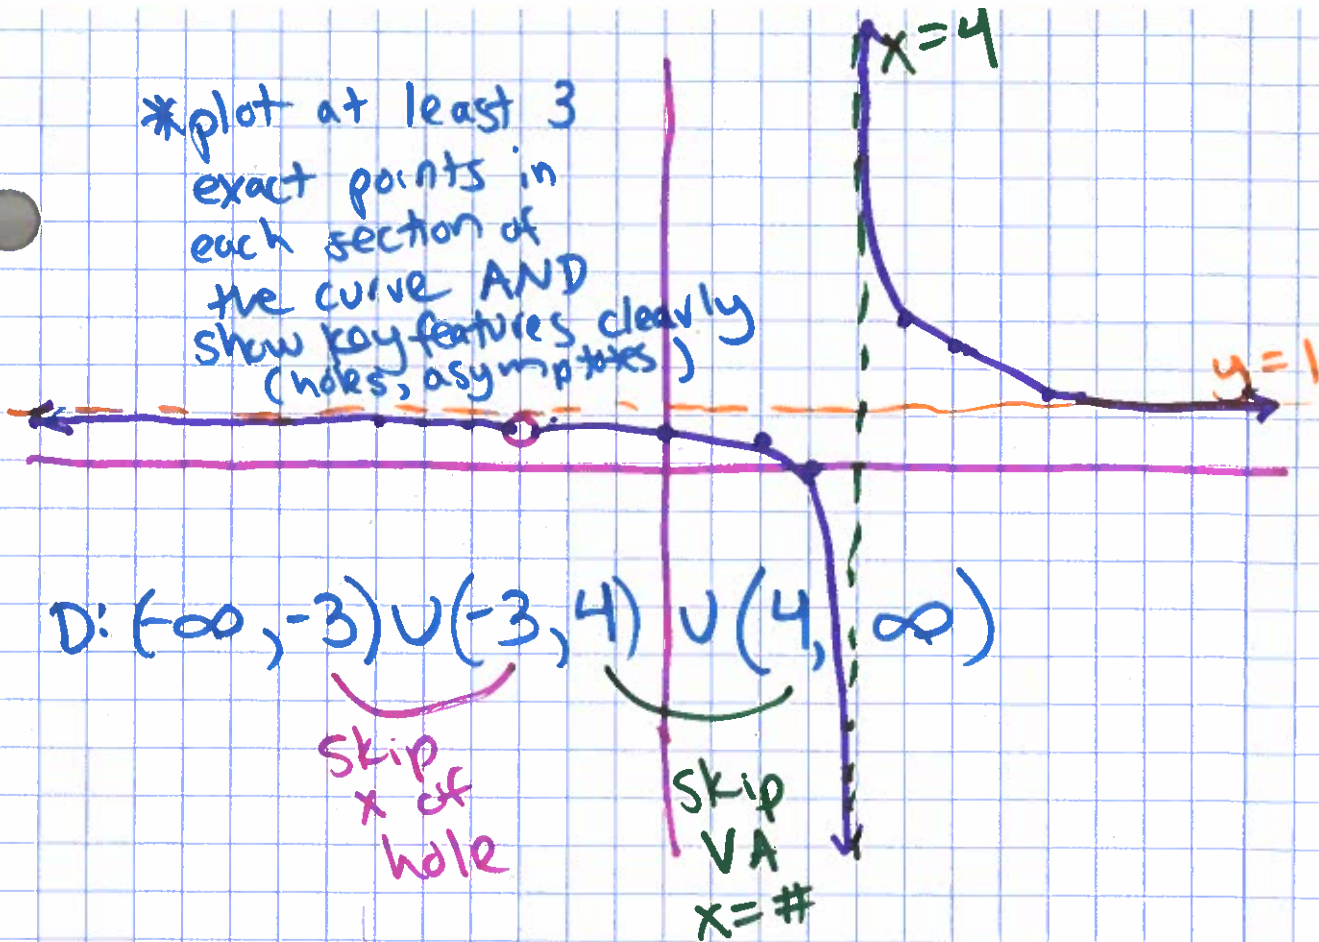 x=4
*plot at least 3
exact points in
each section of
the curve AND
show key features clearly
(holes, asymptotes)
y=1
D: (-∞,-3)∪(-3,4)∪(4,∞)
skip
x of
hole
skip
VA
x=#